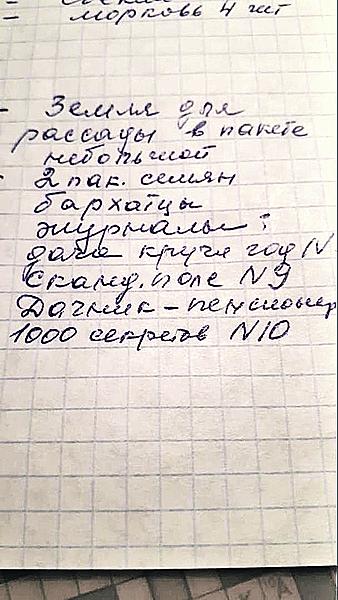 - морковь 4 шт
- Земля для
рассады в пакете
небольшой
- 2 пак. семян
бархатцы
журналы:
дача кругл год N
Сканд. поле N9
Дачник - пенсионер
1000 секретов N10